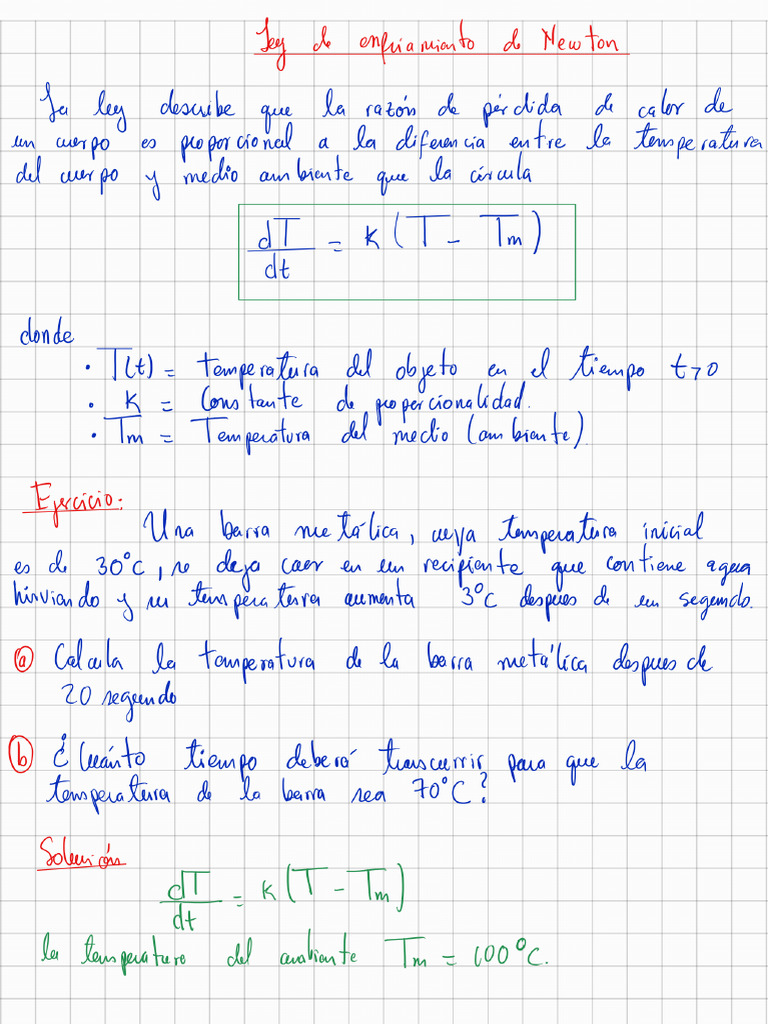 Ley de enfriamiento de Newton
La ley describe que la razón de pérdida de calor de
un cuerpo es proporcional a la diferencia entre la temperatura
del cuerpo y medio ambiente que la círcula
dT/dt = k(T - Tm)
donde
· T(t) = temperatura del objeto en el tiempo t>0
· K = Constante de proporcionalidad.
· Tm = Temperatura del medio (ambiente)
Ejercicio:
Una barra metálica, cuya temperatura inicial
es de 30°C, se deja caer en un recipiente que contiene agua
hirviendo y su temperatura aumenta 3°C despues de un segundo.
a) Calcula la temperatura de la barra metálica despues de
20 segundo
b) ¿Cuánto tiempo deberá transcurrir para que la
temperatura de la barra sea 70°C?
Solución
dT/dt = k(T - Tm)
la temperatura del ambiente Tm = 100°C.